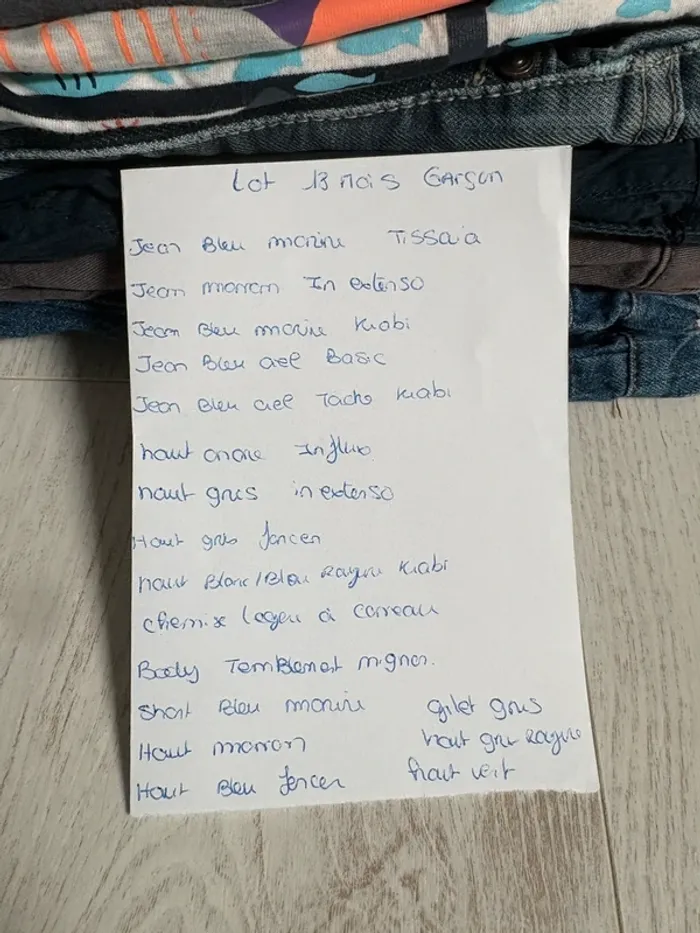 Lot 18 Mois Garçon
Jean Bleu marine Tissaia
Jean marron In extenso
Jean Bleu marine Kiabi
Jean Bleu ciel Basic
Jean Bleu ciel Tache Kiabi
haut encre Influx
haut gris in extenso
Haut gris foncer
haut Blanc/Bleu Rayure Kiabi
chemise à carreau
Body Temblement mignon.
short Bleu marine
Haut marron
Haut Bleu foncer
gilet gris
haut gris Rayure
haut vert